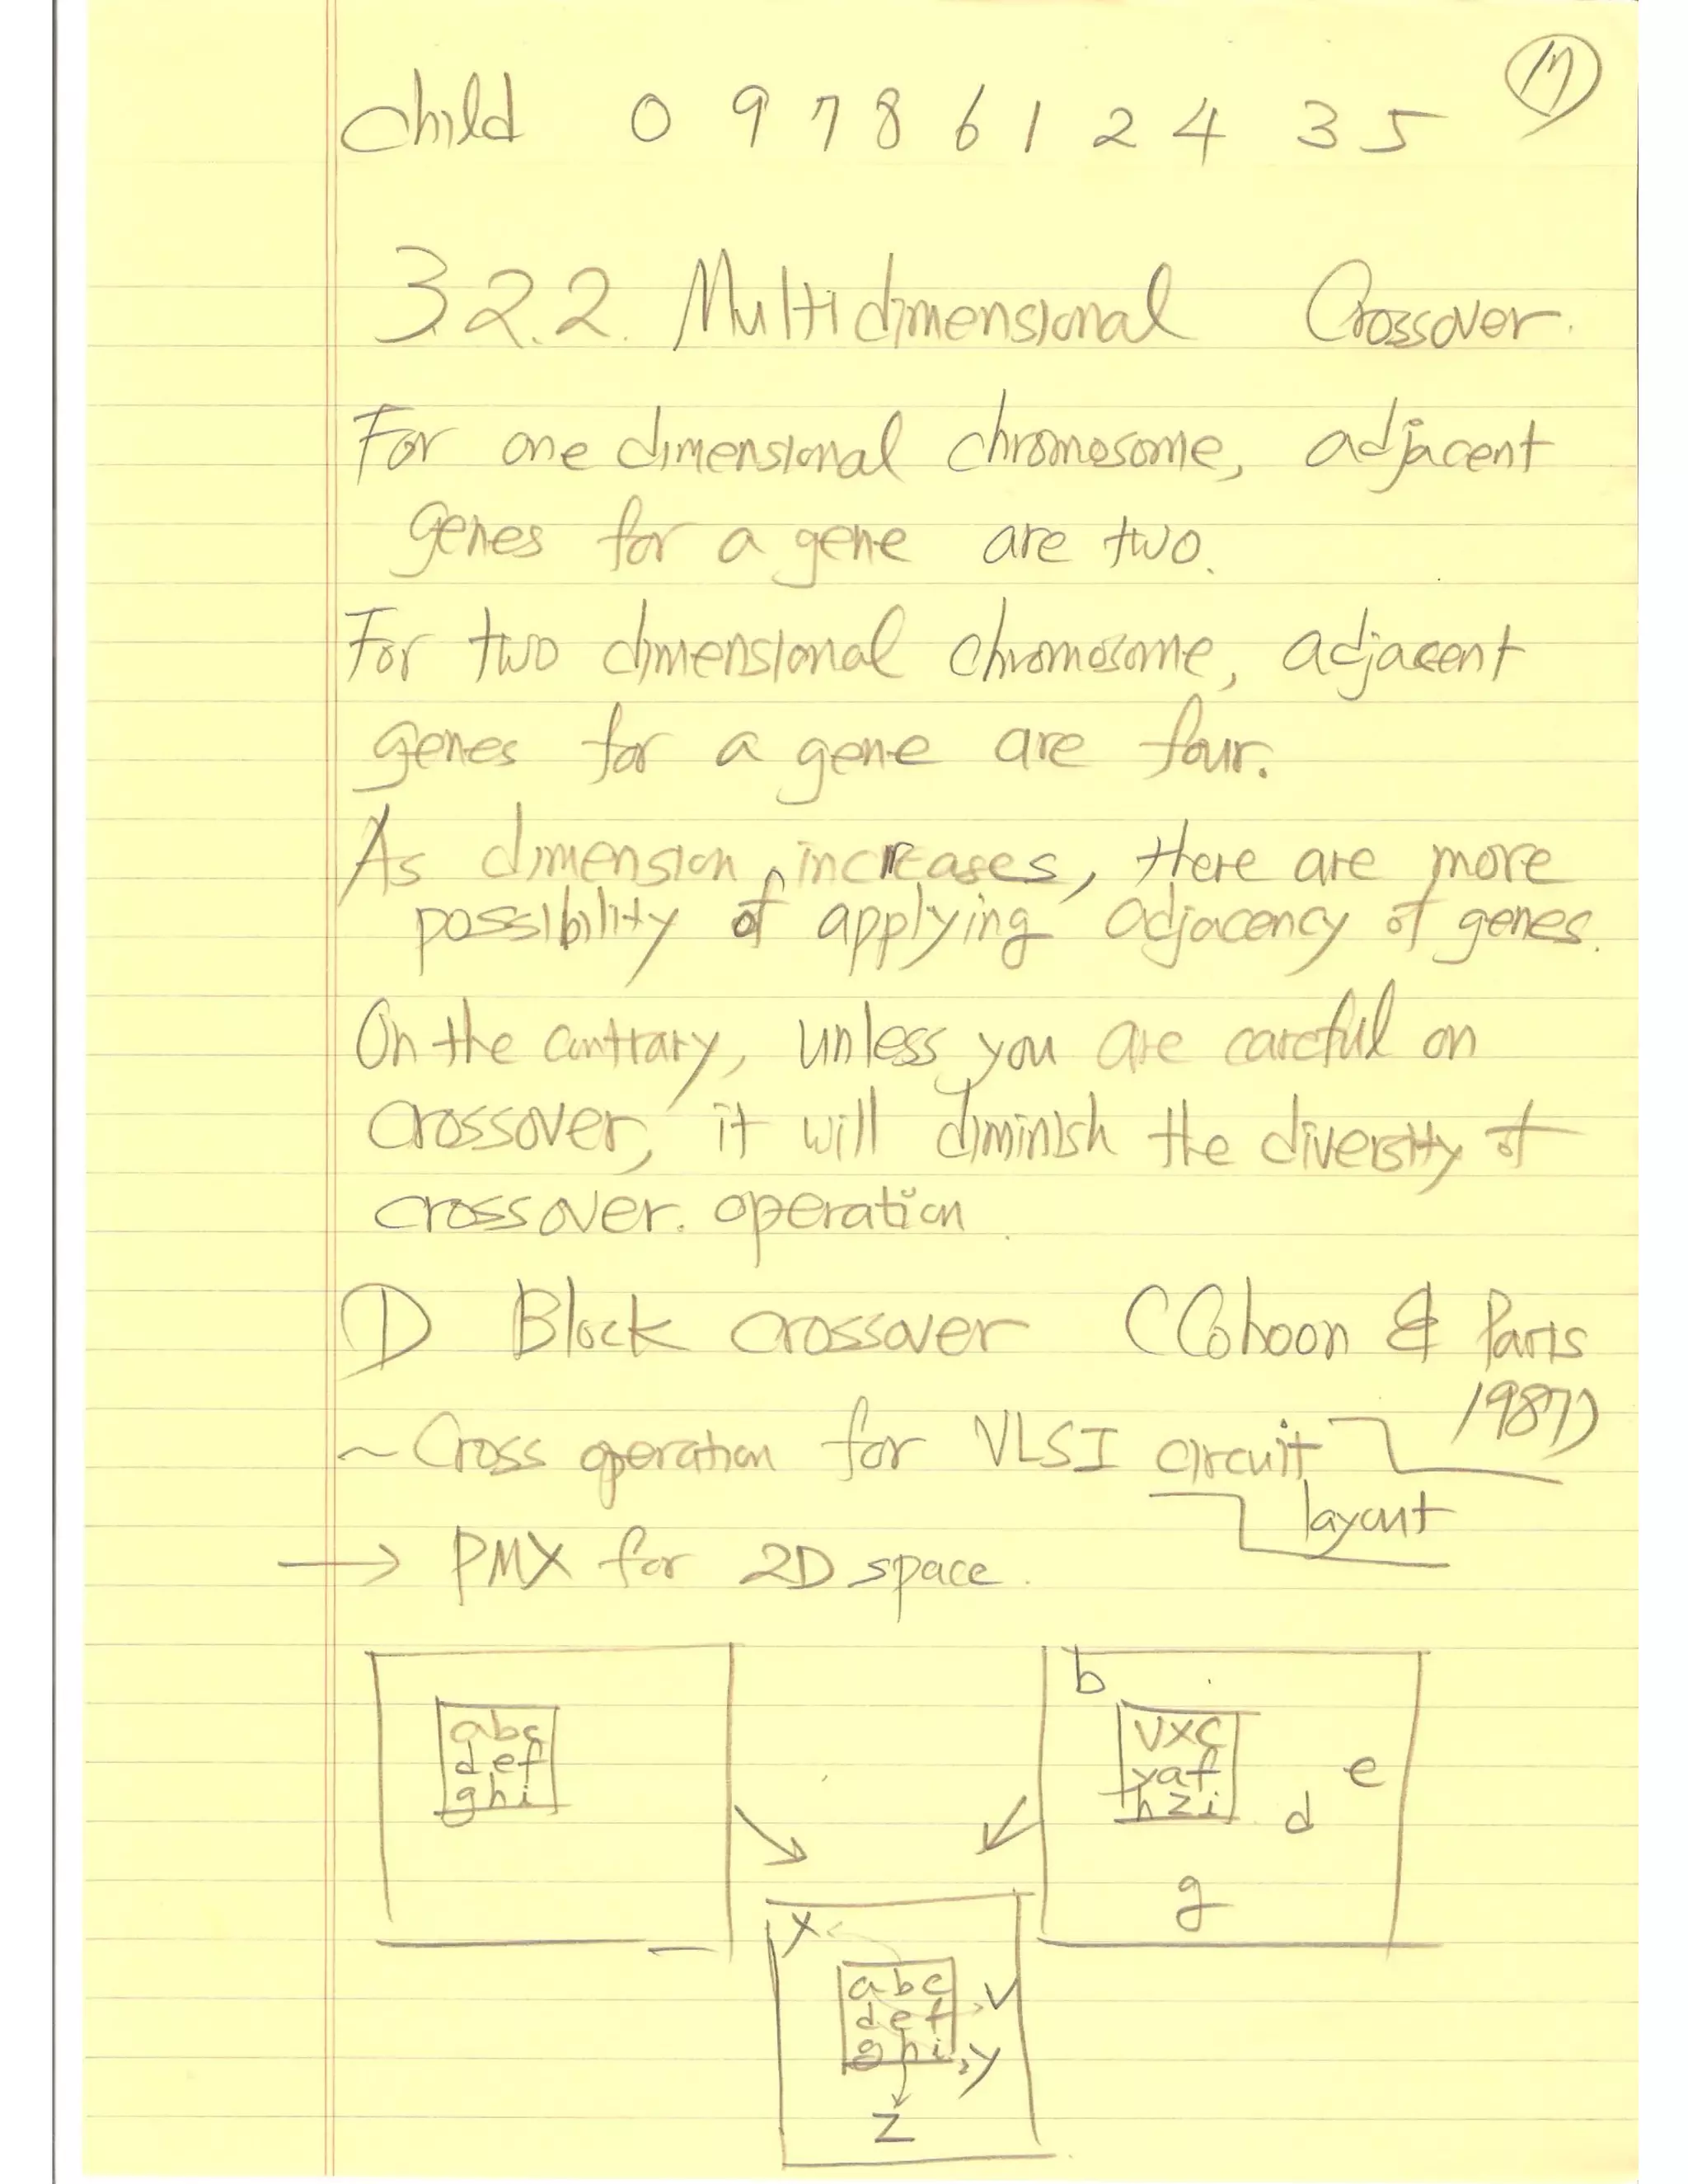 17
child 0 9 7 8 6 1 2 4 3 5
3.2.2. Multidimensional Crossover.
For one dimensional chromosome, adjacent
genes for a gene are two.
For two dimensional chromosome, adjacent
genes for a gene are four.
As dimension increases, there are more
possibility of applying adjacency of genes.
On the contrary, unless you are careful on
crossover, it will diminish the diversity of
crossover. operation.
① Block crossover (Cohoon & Paris
1987)
~ Cross operation for VLSI circuit
layout
→ PMX for 2D space.
abc
def
ghi
b
vxc
yaf
hzi
e
d
g
x
abc
def
ghi
v
y
z